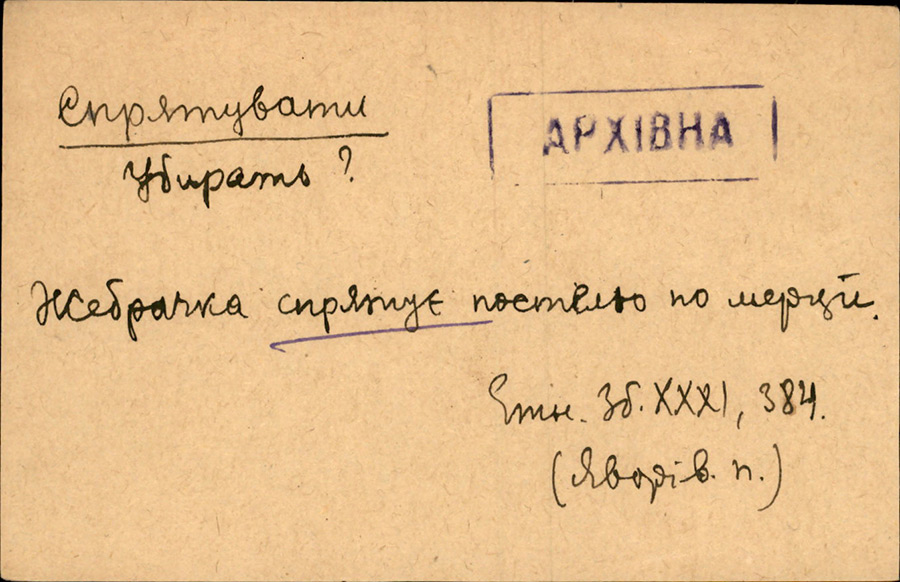 Спрятувати
АРХІВНА
Убирать?
Жебрачка спрятує постелю по мерци.
Етн. Зб. XXXI, 384.
(Яворів. п.)